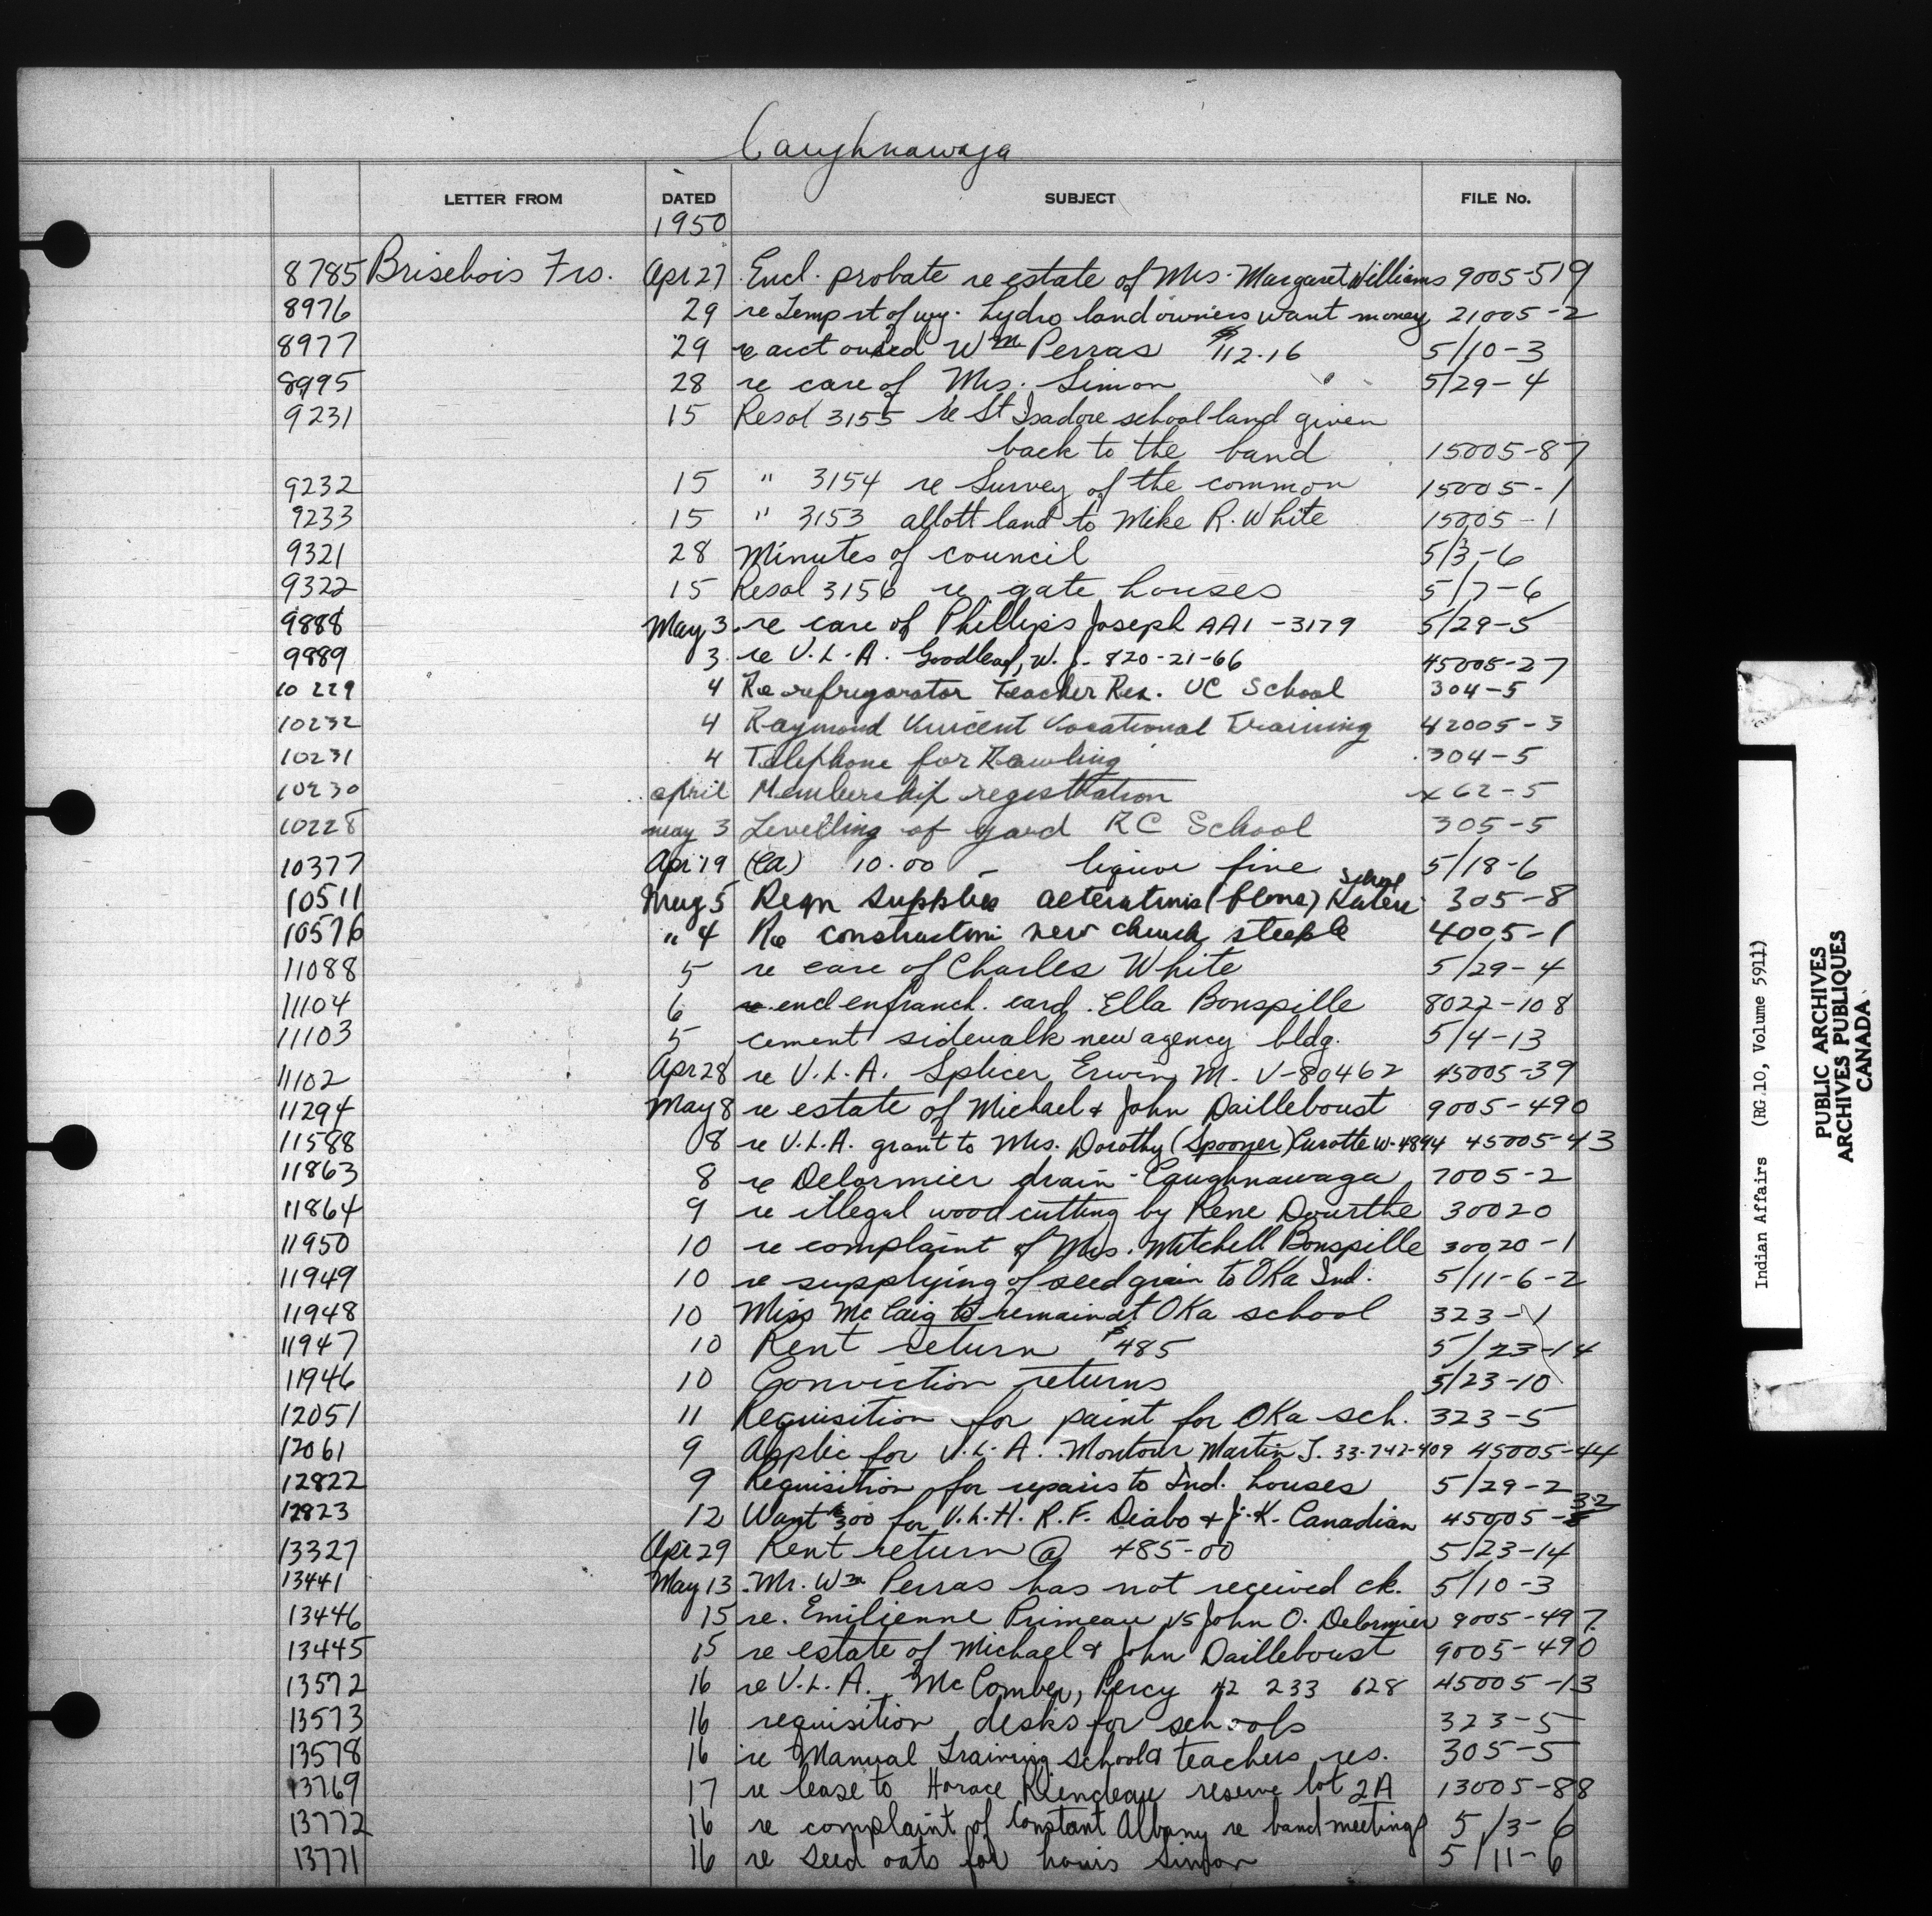 Caughnawaga
LETTER FROM DATED SUBJECT FILE No.
1950
8785 Brisebois Frs. Apr 27 Encl. probate re estate of Mrs. Margaret Williams 9005-519
8976 29 re Temp rt of wy. hydro land owners want money 21005-2
8977 29 re acct owed Wm Perras $112.16 5/10-3
8995 28 re care of Mrs. Simon 5/29-4
9231 15 Resol 3155 re St Isadore school land given
back to the band 15005-87
9232 15 " 3154 re Survey of the common 15005-1
9233 15 " 3153 allott land to Mike R. White 15005-1
9321 28 Minutes of council 5/3-6
9322 15 Resol 3156 re gate houses 5/7-6
9888 May 3 re care of Phillips Joseph AA1-3179 5/29-5
9889 3 re V.L.A. Goodleaf, W. J. 820-21-66 45005-27
10229 4 Re refrigarator Teacher Res. UC School 304-5
10232 4 Raymond Vincent Vocational Training 42005-3
10231 4 Telephone for Rawling 304-5
10230 april Membership registration x62-5
10228 may 3 Levelling of yard RC School 305-5
10377 Apr 19 (CA) 10.00 - liquor fine 5/18-6
10511 May 5 Reqn supplies alterations (plans) Kateri School 305-8
10576 " 4 Re construction new church steeple 4005-1
11088 5 re care of Charles White 5/29-4
11104 6 re encl enfranch. card. Ella Bonspille 8022-108
11103 5 cement sidewalk new agency bldg. 5/4-13
11102 Apr 28 re V.L.A. Splicer Erwin M. V-80462 45005-39
11294 May 8 re estate of Michael & John Dailleboust 9005-490
11588 8 re V.L.A. grant to Mrs. Dorothy (Spooner) Curotte W-4894 45005-43
11863 8 re Delormier drain - Caughnawaga 7005-2
11864 9 re illegal wood cutting by Rene Dourthe 30020
11950 10 re complaint of Mrs. Mitchell Bonspille 30020-1
11949 10 re supplying of seed grain to OKa Ind. 5/11-6-2
11948 10 Miss McCaig to remain at OKa school 323-1
11947 10 Rent return $485 5/23-14
11946 10 Conviction returns 5/23-10
12051 11 Requisition for paint for OKa sch. 323-5
12061 9 Applic for V.L.A. Montour Martin J. 33-742-409 45005-44
12822 9 Requisition for repairs to Ind. houses 5/29-2
12823 12 Want $300 for V.L.H. R.F. Diabo & J.K. Canadian 45005-32
13327 Apr 29 Rent return @ 485-00 5/23-14
13441 May 13 Mr. Wm Perras has not received ck. 5/10-3
13446 15 re. Emilienne Primeau vs John O. Delormier 9005-497
13445 15 re estate of Michael & John Dailleboust 9005-490
13572 16 re V.L.A. McComber, Percy 42 233 628 45005-13
13573 16 requisition desks for schools 323-5
13578 16 re Manual Training school & teachers res. 305-5
13769 17 re lease to Horace Riendeau reserve lot 2A 13005-88
13772 16 re complaint of Constant Albany re band meetings 5/3-6
13771 16 re seed oats for Louis Simon 5/11-6
Indian Affairs (RG 10, Volume 5911)
PUBLIC ARCHIVES
ARCHIVES PUBLIQUES
CANADA